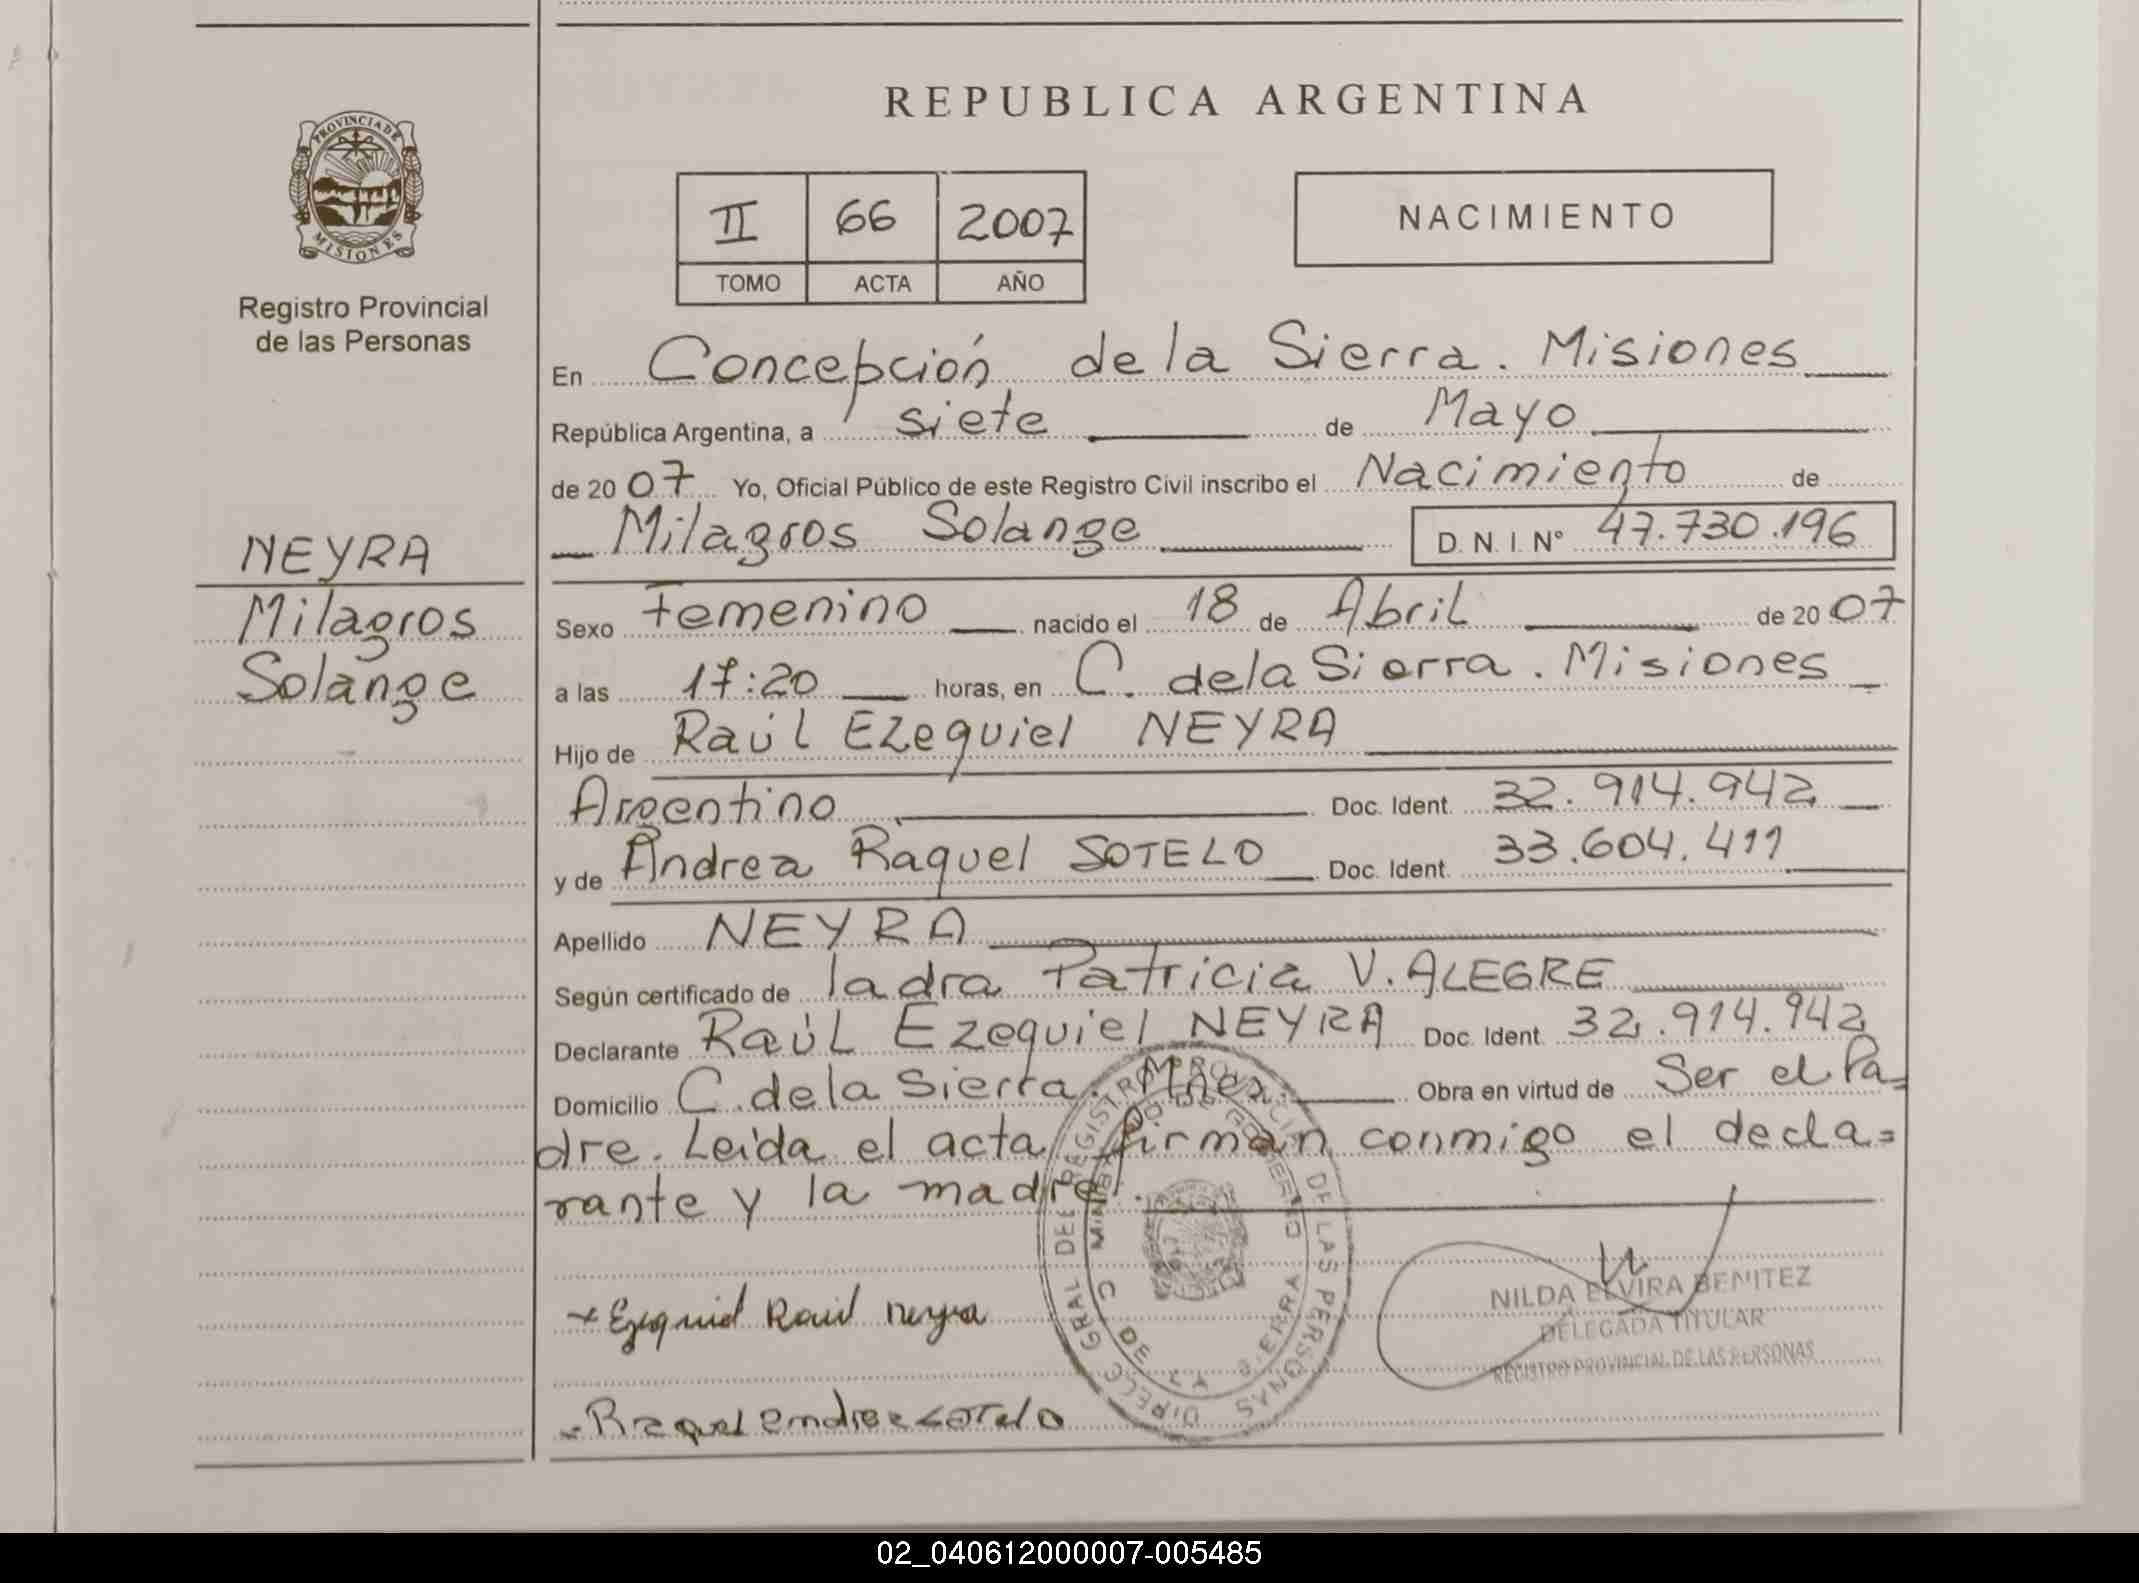 REPUBLICA ARGENTINA
PROVINCIA DE
MISIONES
Registro Provincial
de las Personas
II 66 2007
TOMO ACTA AÑO
NACIMIENTO
En Concepción de la Sierra. Misiones
República Argentina, a siete de Mayo
de 2007 Yo, Oficial Público de este Registro Civil inscribo el Nacimiento de
Milagros Solange D.N.I.N° 47.730.196
NEYRA
Milagros
Solange
Sexo Femenino nacido el 18 de Abril de 2007
a las 17:20 horas, en C. de la Sierra. Misiones
Hijo de Raúl Ezequiel NEYRA
Argentino Doc. Ident. 32.914.942
y de Andrea Raquel SOTELO Doc. Ident. 33.604.411
Apellido NEYRA
Según certificado de la dra Patricia V. ALEGRE
Declarante Raúl Ezequiel NEYRA Doc. Ident. 32.914.942
Domicilio C. de la Sierra. Mnes. Obra en virtud de Ser el Pa=
dre. Leída el acta, firman conmigo el decla=
rante y la madre.
Ezequiel Raul neyra
NILDA ELVIRA BENITEZ
DELEGADA TITULAR
REGISTRO PROVINCIAL DE LAS PERSONAS
DIRECC GRAL DEL REGISTRO PROVINCIAL DE LAS PERSONAS
C DE LA SIERRA
02_040612000007-005485